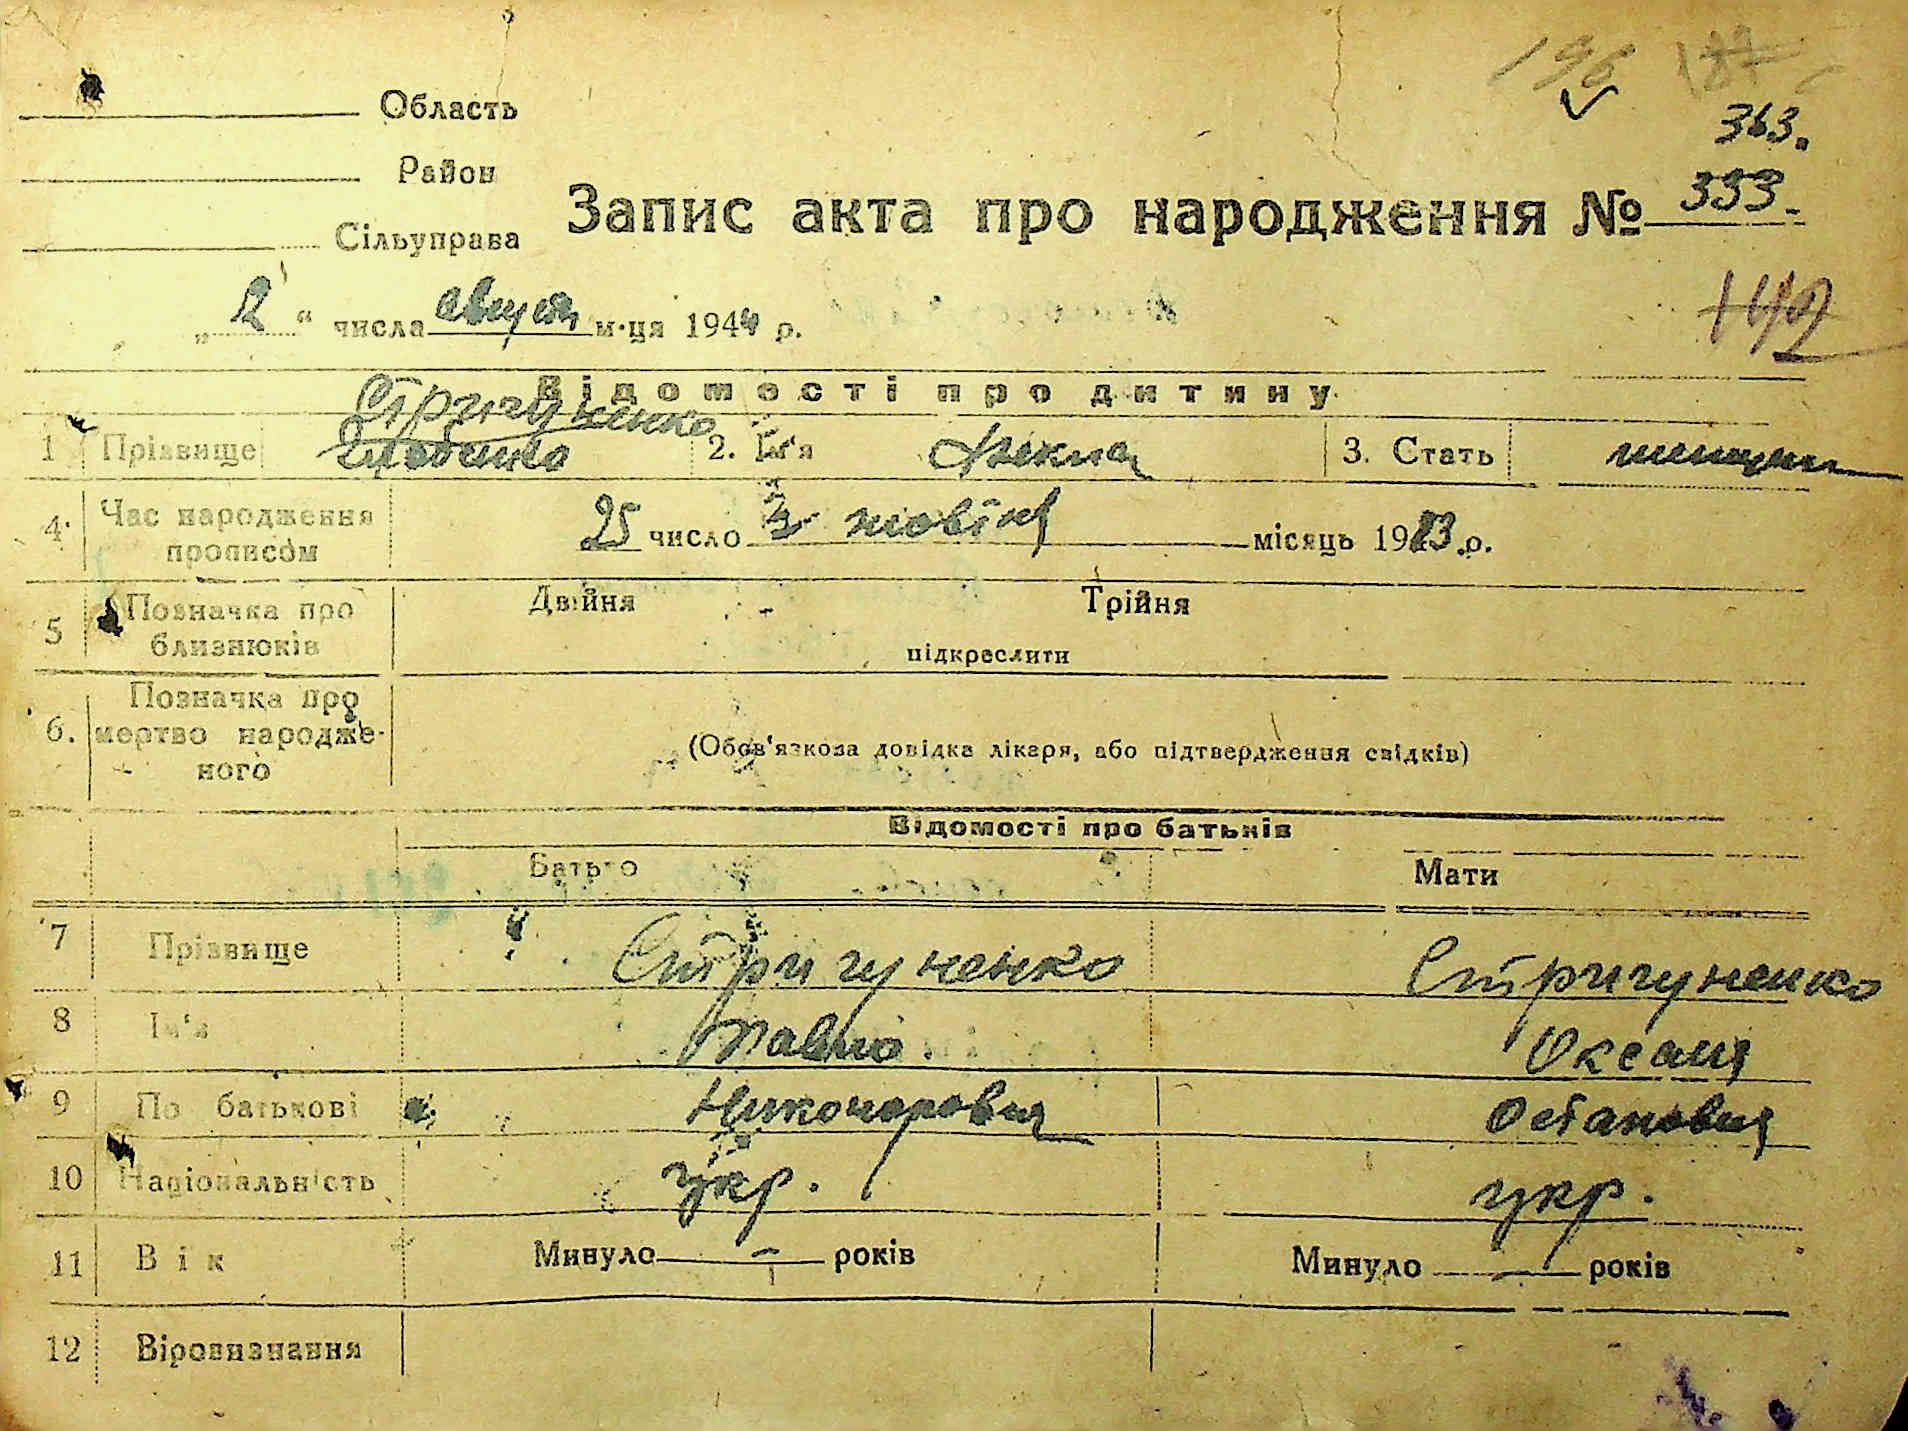 196 187
363.
Область
Район
Сільуправа
Запис акта про народження № 333.
„2“ числа август м-ця 1944 р.
142
Відомості про дитину
Стригуненко
1 Прізвище 2. Ім'я Текля 3. Стать женщин
4. Час народження прописом 25 число жовтня місяць 1983 р.
5 Позначка про близнюків Двійня - Трійня
підкреслити
6. Позначка про мертво народженого (Обов'язкова довідка лікаря, або підтвердження свідків)
Відомості про батьків
Батько Мати
7 Прізвище Стригуненко Стригуненко
8 Ім'я Павло Оксана
9 По батькові Никоноровия Остаповия
10 Національність укр. укр.
11 Вік Минуло — років Минуло — років
12 Віровизнання